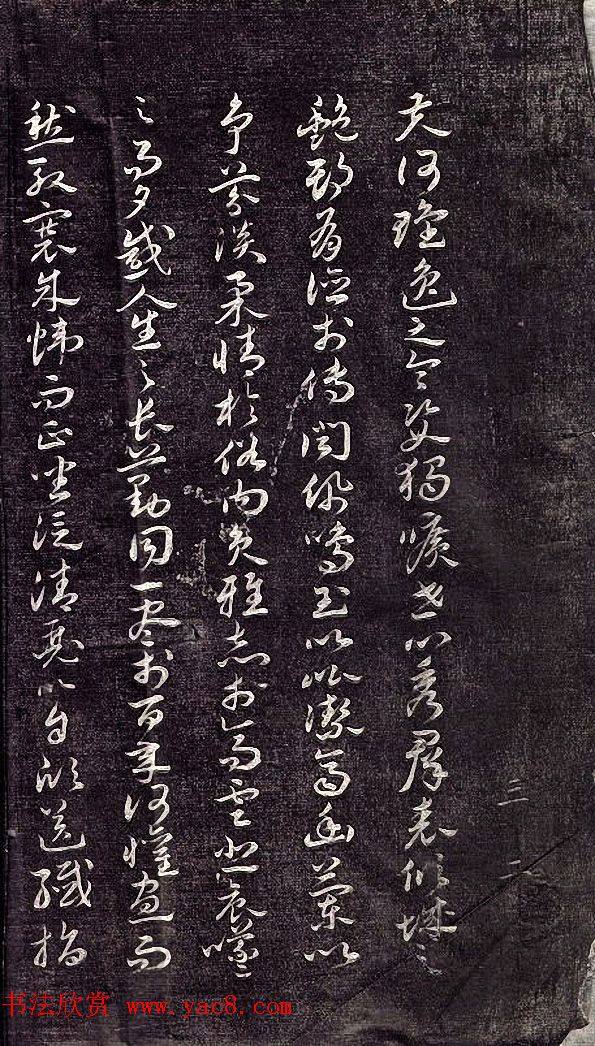 夫何瓌逸之令姿獨曠世以秀群表傾城之
艷期有德於傳聞佩鳴玉以比潔齊幽蘭以
爭芬淡柔情於俗內負雅志於高雲悲晨曦
之易夕感人生之長勤同一盡於百年何懽寡而
愁殷褰朱幃而正坐泛清瑟以自欣送纖指
三 二
书法欣赏 www.yac8.com